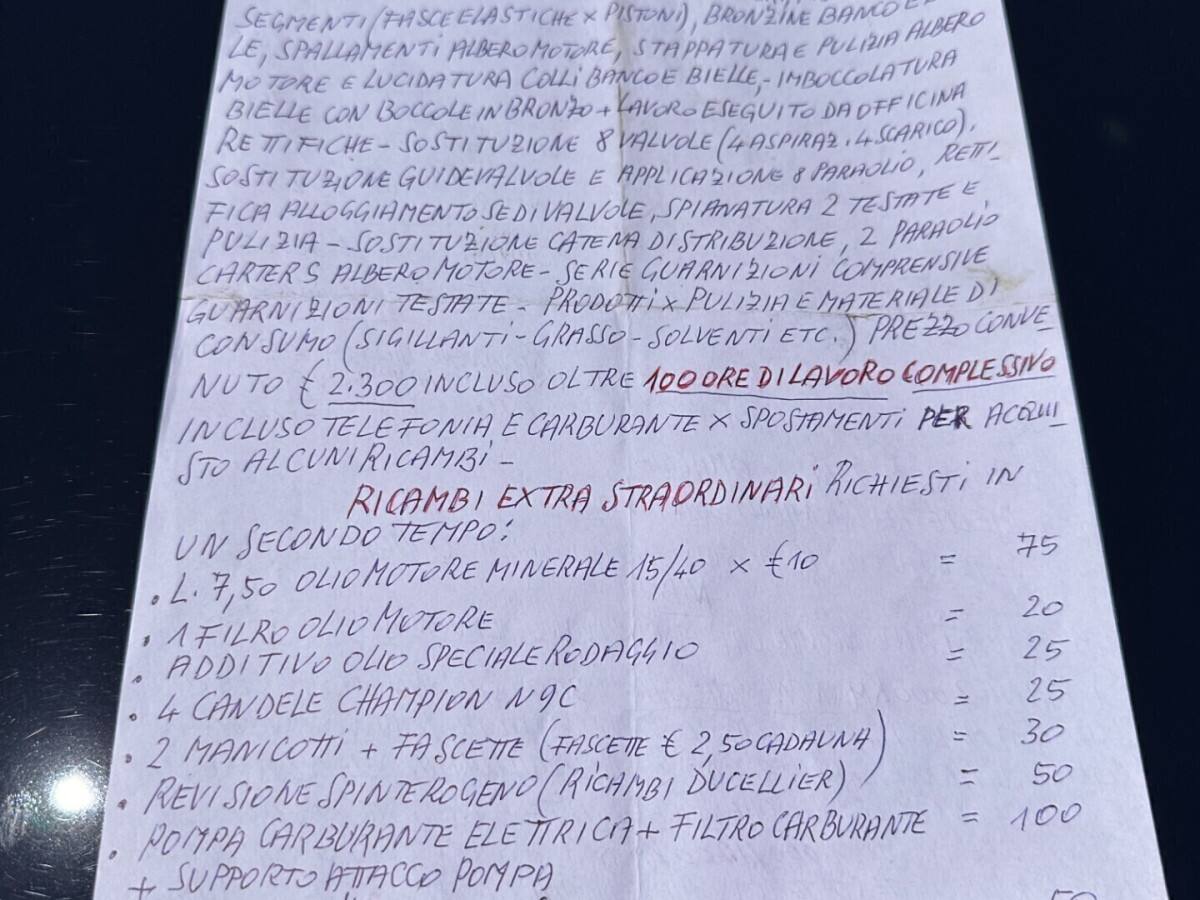 SEGMENTI (FASCE ELASTICHE X PISTONI), BRONZINE BANCO E
LE, SPALLAMENTI ALBERO MOTORE, STAPPATURA E PULIZIA ALBERO
MOTORE E LUCIDATURA COLLI BANCO E BIELLE,- IMBOCCOLATURA
BIELLE CON BOCCOLE IN BRONZO + LAVORO ESEGUITO DA OFFICINA
RETTIFICHE - SOSTITUZIONE 8 VALVOLE (4 ASPIRAZ. 4 SCARICO),
SOSTITUZIONE GUIDEVALVOLE E APPLICAZIONE 8 PARAOLIO, RETTI-
FICA ALLOGGIAMENTO SEDI VALVOLE, SPIANATURA 2 TESTATE E
PULIZIA - SOSTITUZIONE CATENA DISTRIBUZIONE, 2 PARAOLIO
CARTERS ALBERO MOTORE - SERIE GUARNIZIONI COMPRENSIVE
GUARNIZIONI TESTATE - PRODOTTI X PULIZIA E MATERIALE DI
CONSUMO (SIGILLANTI - GRASSO - SOLVENTI ETC.) PREZZO CONVE-
NUTO € 2.300 INCLUSO OLTRE 100 ORE DI LAVORO COMPLESSIVO
INCLUSO TELEFONIA E CARBURANTE X SPOSTAMENTI PER ACQUI-
STO ALCUNI RICAMBI -
RICAMBI EXTRA STRAORDINARI RICHIESTI IN
UN SECONDO TEMPO:
• L. 7,50 OLIO MOTORE MINERALE 15/40 X € 10 = 75
• 1 FILRO OLIO MOTORE = 20
• ADDITIVO OLIO SPECIALE RODAGGIO = 25
• 4 CANDELE CHAMPION N9C = 25
• 2 MANICOTTI + FASCETTE (FASCETTE € 2,50 CADAUNA) = 30
• REVISIONE SPINTEROGENO (RICAMBI DUCELLIER) = 50
• POMPA CARBURANTE ELETTRICA + FILTRO CARBURANTE = 100
+ SUPPORTO ATTACCO POMPA